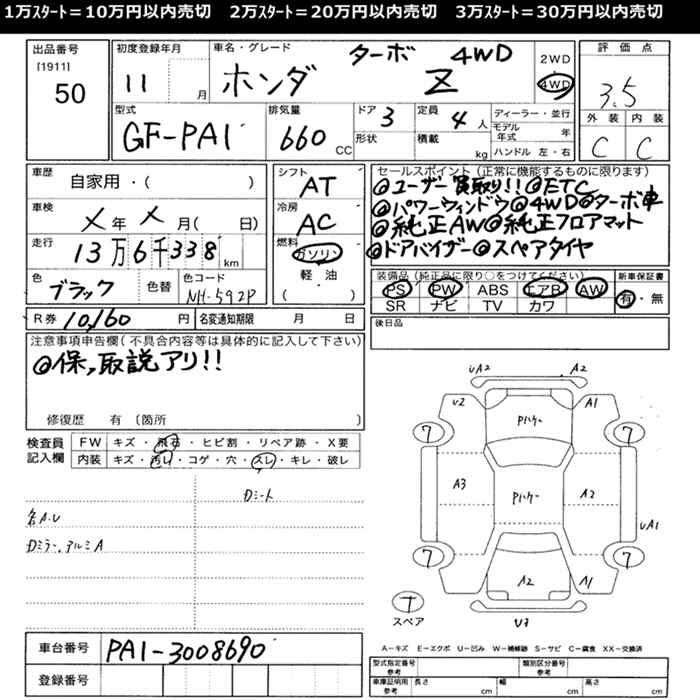 1万ｽﾀｰﾄ＝10万円以内売切　2万ｽﾀｰﾄ＝20万円以内売切　3万ｽﾀｰﾄ＝30万円以内売切
出品番号
[1911]
50
初度登録年月
11 月
車名・グレード
ターボ 4WD
ホンダ Z
2WD
4WD
評価点
3.5
外装 内装
C C
型式
GF-PA1
排気量
660 CC
ドア 3
形状
定員 4 人
積載 kg
ディーラー・並行
モデル年式 年
ハンドル 左・右
車歴
自家用・( )
車検
メ年 メ月( 日)
走行
13万6千338 km
色
ブラック
色替
色コード
NH-592P
シフト
AT
冷房
AC
燃料
ガソリン
軽油
( )
セールスポイント（正常に機能するものに限ります）
◎ユーザー買取り!! ◎ETC
◎パワーウィンドウ◎4WD◎ターボ車
◎純正AW◎純正フロアマット
◎ドアバイザー◎スペアタイヤ
装備品（純正品に限り○をつけてください）
PS PW ABS エアB AW
SR ナビ TV カワ
新車保証書
有・無
後日品
R券 10,160 円
名変通知期限 月 日
注意事項申告欄（不具合内容等は具体的に記入して下さい）
◎保,取説アリ!!
修復歴 有（箇所 ）
検査員
記入欄
FW キズ・飛石・ヒビ割・リペア跡・X要
内装 キズ・汚れ・コゲ・穴・スレ・キレ・破レ
Dミート
各A.U
Dミラー、アルミA
UA2 A2
U2 A1
7 7
A3 A2
UA1
7 7
A2 A1
スペア
U3
A－キズ E－エクボ U－凹み W－補修跡 S－サビ C－腐食 XX－交換済
車台番号 PA1-3008690
登録番号
型式指定番号
参考
類別区分番号
参考
車庫証明用
参考
長さ cm
幅 cm
高さ cm